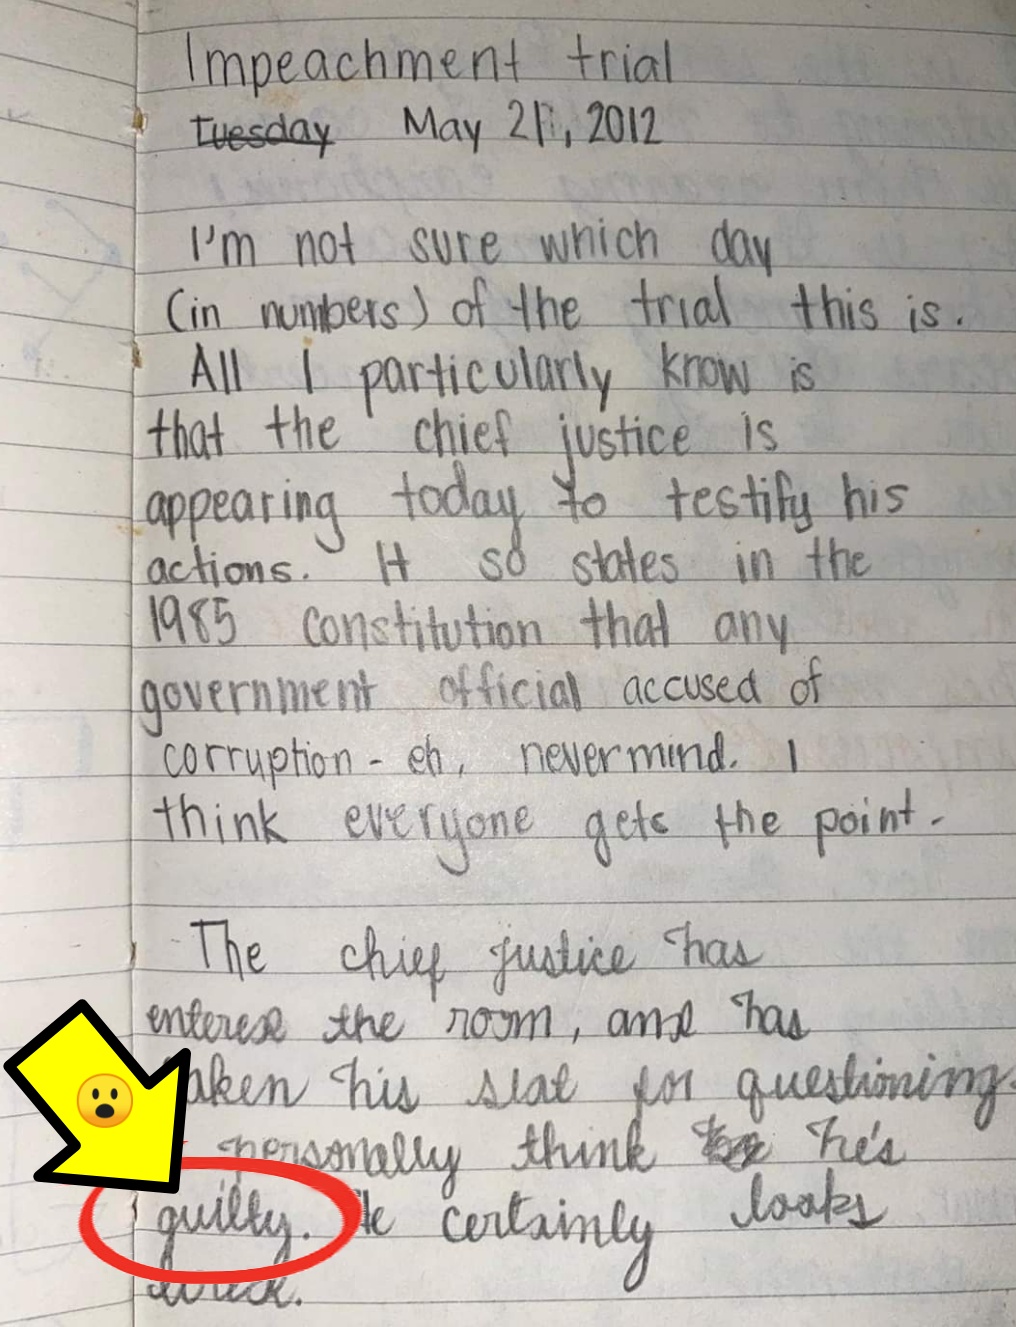 Impeachment trial
Tuesday May 2012
I'm not sure which day
(in numbers) of the trial this is.
All I particularly know is
that the chief justice is
appearing today to testify his
actions. It so states in the
1985 constitution that any
government official accused of
corruption - eh, nevermind. I
think everyone gets the point.
The chief justice has
entered the room, and has
aken his seat for questioning.
personally think he's
guilty. He certainly looks